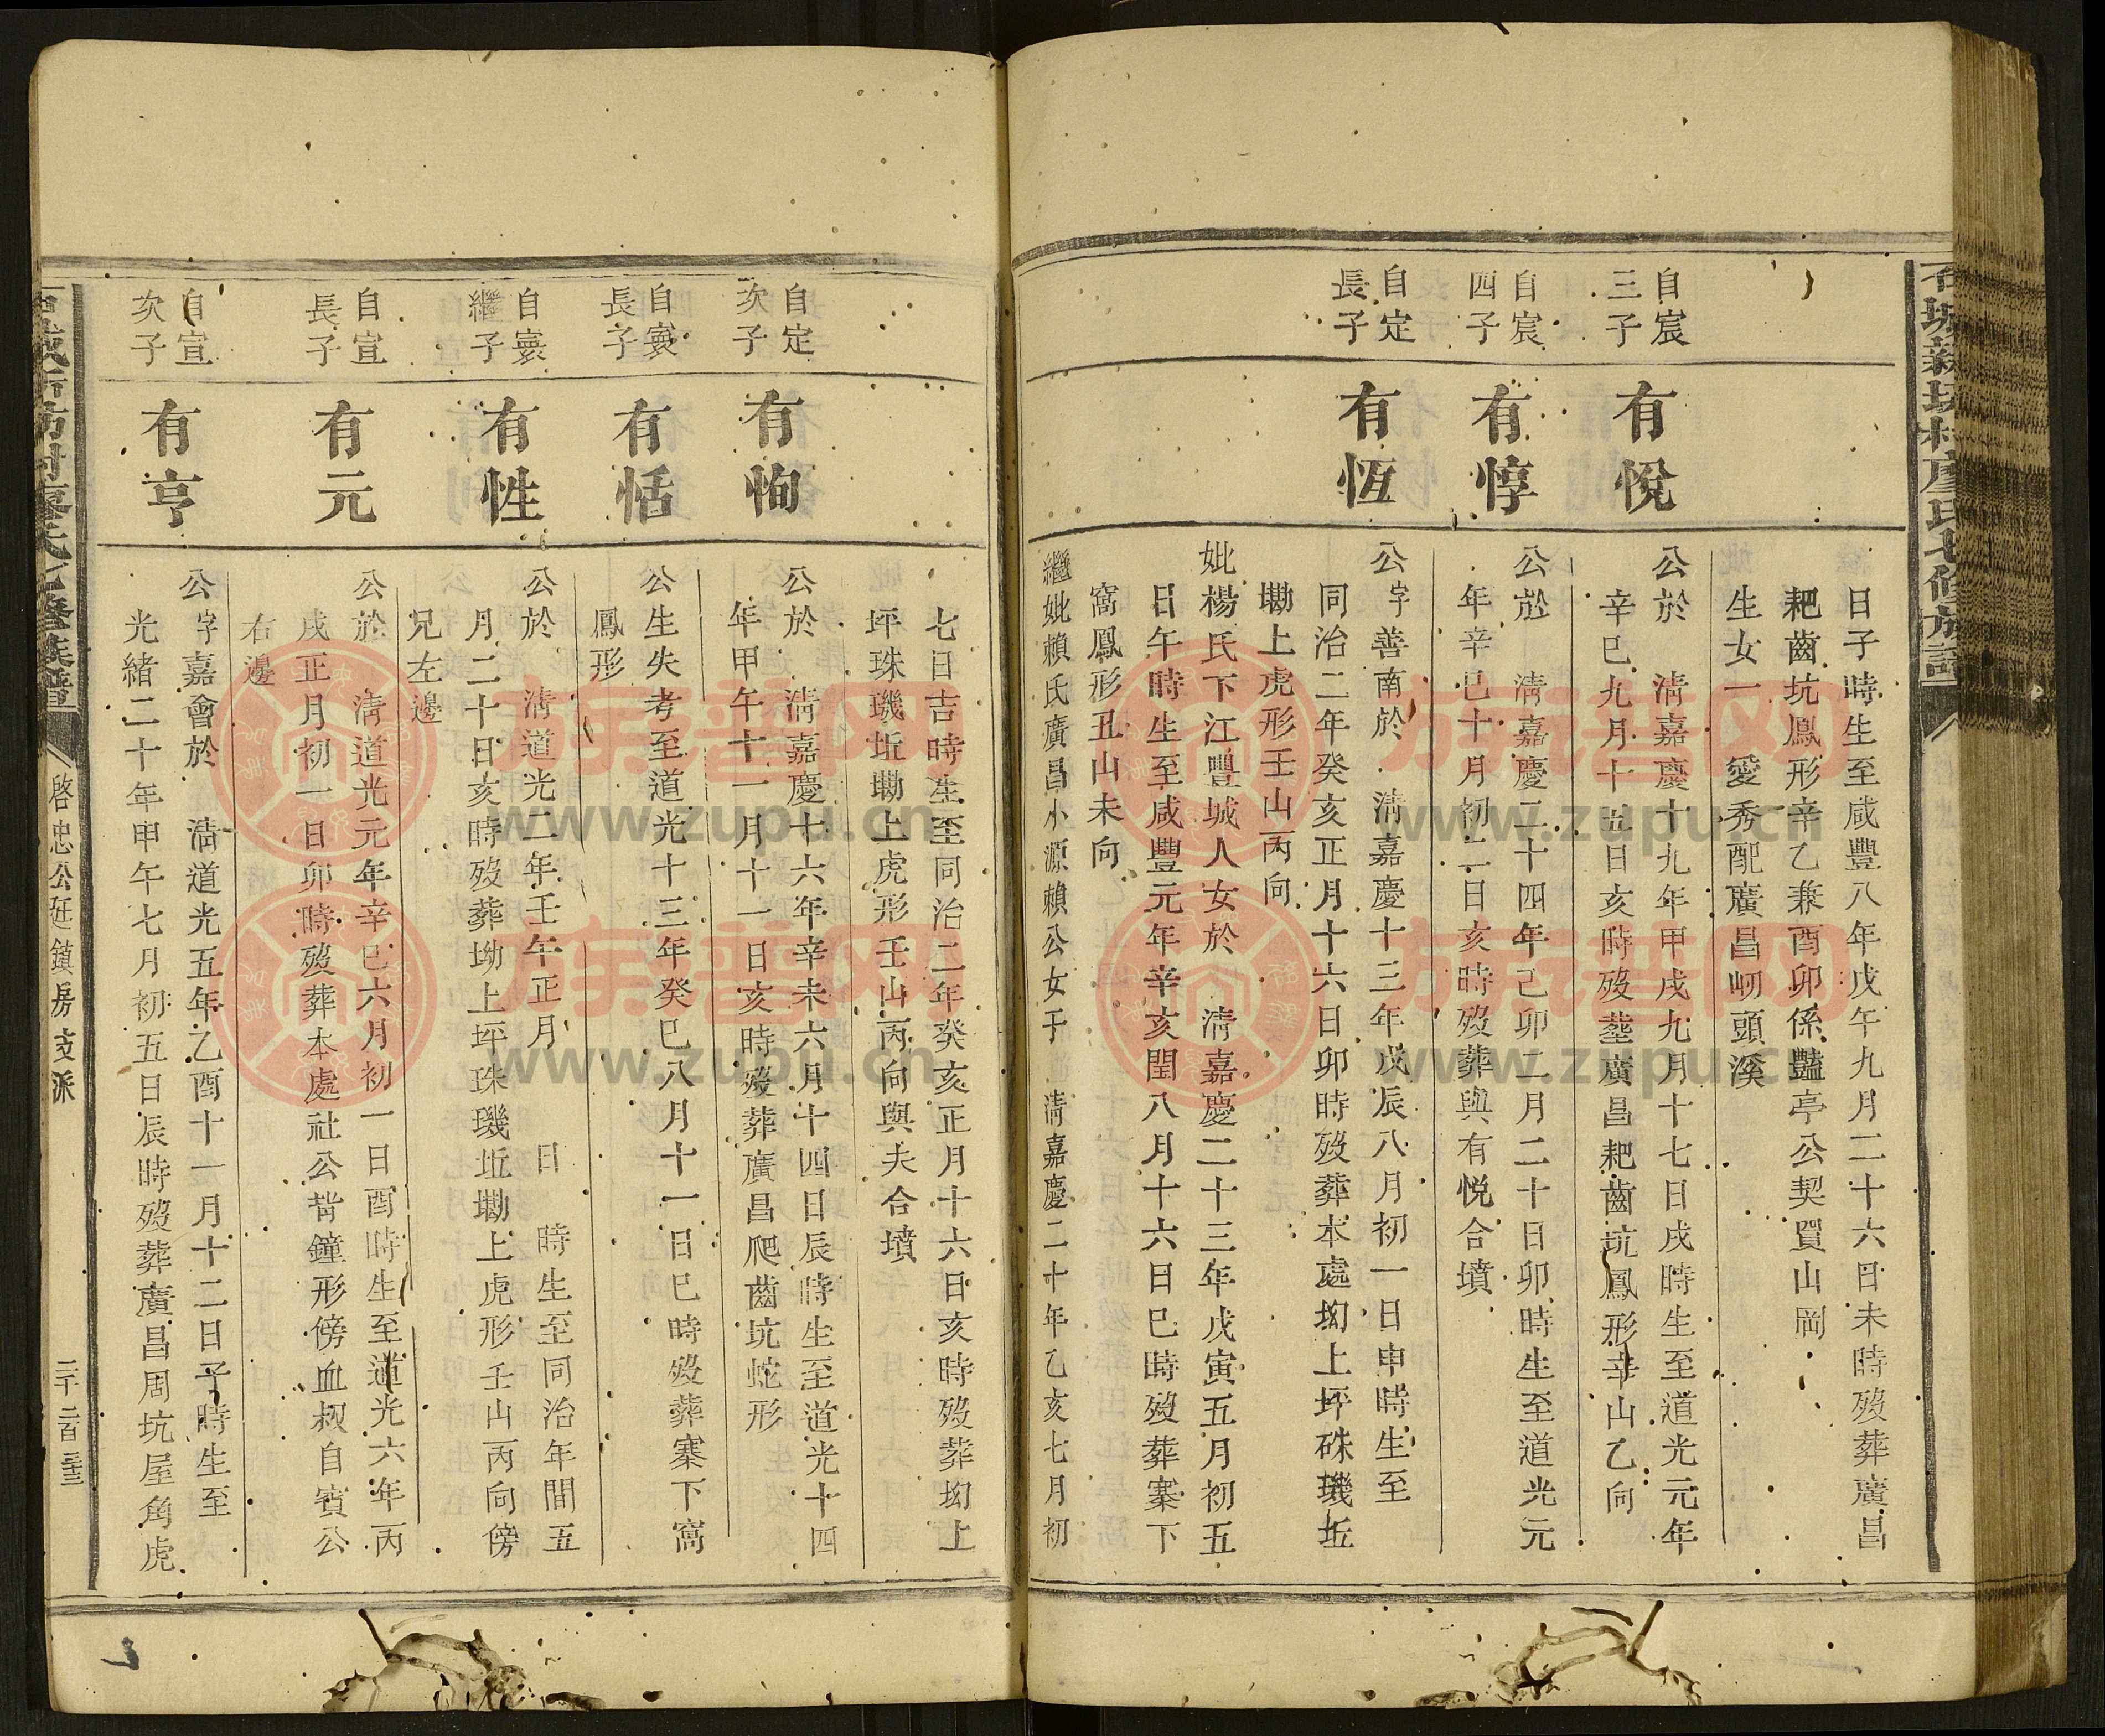 日子時生至咸豐八年戊午九月二十六日未時歿葬廣昌
耙齒坑鳳形辛乙兼酉卯係豔亭公契買山岡
生女一 愛秀配廣昌峒頭溪
自宸
三子
有悅
公於 清嘉慶十九年甲戌九月十七日戌時生至道光元年
辛巳九月十五日亥時歿塟廣昌耙齒坑鳳形辛山乙向
自宸
四子
有惇
公於 清嘉慶二十四年己卯二月二十日卯時生至道光元
年辛巳十月初二日亥時歿葬與有悅合墳
自定
長子
有恆
公字善南於 清嘉慶十三年戊辰八月初一日申時生至
同治二年癸亥正月十六日卯時歿葬本處坳上坪硃璣坵
墈上虎形壬山丙向
妣楊氏下江豐城人女於 清嘉慶二十三年戊寅五月初五
日午時生至咸豐元年辛亥閏八月十六日巳時歿葬寨下
窩鳳形丑山未向
繼妣賴氏廣昌小源賴公女于 清嘉慶二十年乙亥七月初
七日吉時生至同治二年癸亥正月十六日亥時歿葬坳上
坪珠璣坵墈上虎形壬山丙向與夫合墳
自定
次子
有恂
公於 清嘉慶十六年辛未六月十四日辰時生至道光十四
年甲午十一月十一日亥時歿葬廣昌爬齒坑蛇形
自寰
長子
有恬
公生失考至道光十三年癸巳八月十一日巳時歿葬寨下窩
鳳形
自寰
繼子
有性
公於 清道光二年壬午正月 日 時生至同治年間五
月二十日亥時歿葬坳上坪珠璣坵墈上虎形壬山丙向傍
兄左邊
自宣
長子
有元
公於 清道光元年辛巳六月初一日酉時生至道光六年丙
戌正月初一日卯時歿葬本處社公背鐘形傍血叔自賓公
右邊
自宣
次子
有亨
公字嘉會於 清道光五年乙酉十一月十二日子時生至
光緒二十年甲午七月初五日辰時歿葬廣昌周坑屋角虎
啓忠公廷鎮房支派
族譜网
www.zupu.cn
族譜网
www.zupu.cn
族譜网
www.zupu.cn
族譜网
www.zupu.cn